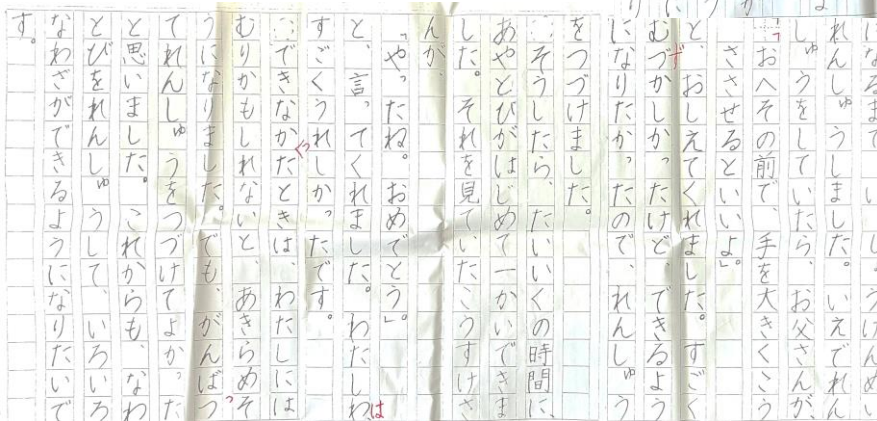 になるまで、いっしょうけんめい
れんしゅうしました。いえでれん
しゅうをしていたら、お父さんが、
「おへその前で、手を大きくこう
ささせるといいよ」。
と、おしえてくれました。すごく
ず
むづかしかったけど、できるよう
になりたかったので、れんしゅう
をつづけました。
そうしたら、たいいくの時間に、
あやとびがはじめて一かいできま
した。それを見ていたこうすけさ
んが、
「やったね。おめでとう」。
は
と、言ってくれました。わたしわ、
すごくうれしかったです。
っ
できなかたときは、わたしには
むりかもしれないと、あきらめそ
うになりました。でも、がんばっ
てれんしゅうをつづけてよかった
と思いました。これからも、なわ
とびをれんしゅうして、いろいろ
なわざができるようになりたいで
す。